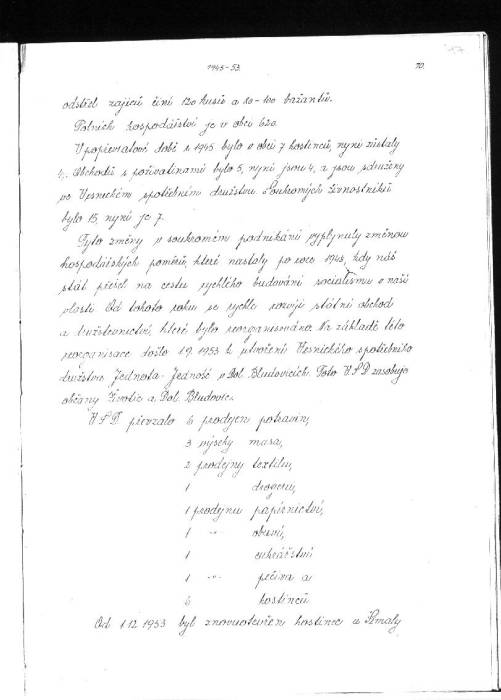 1945-53. 70.
odstřel zajíců činí 120 kusů a 10-100 bažantů.
Polních hospodářství je v obci 620.
V popřevratové době r. 1945 bylo v obci 7 hostinců, nyní zůstaly
4. Obchodů s potravinami bylo 5, nyní jsou 4, a jsou sdruženy
ve Vesnickém spotřebním družstvu. Soukromých živnostníků
bylo 15, nyní je 7.
Tyto změny v soukromém podnikání vyplynuly změnou
hospodářských poměrů, které nastaly po roce 1948, kdy náš
stát přešel na cestu rychlého budování socialismu v naší
vlasti. Od tohoto roku se rychle rozvíjí státní obchod
a družstevnictví, které bylo reorganisováno. Na základě této
reorganisace došlo 1.9.1953 k utvoření Vesnického spotřebního
družstva Jednota-Jedność v Dol. Bludovicích. Toto VSD zásobuje
občany Životic a Dol. Bludovic.
VSD převzalo 6 prodejen potravin,
3 výseky masa,
2 prodejny textilu,
1 drogerii,
1 prodejnu papírnictví,
1 -"- obuvi,
1 cukrářství
1 -"- pečiva a
6 hostinců
Od 1.12.1953 byl znovuotevřen hostinec u